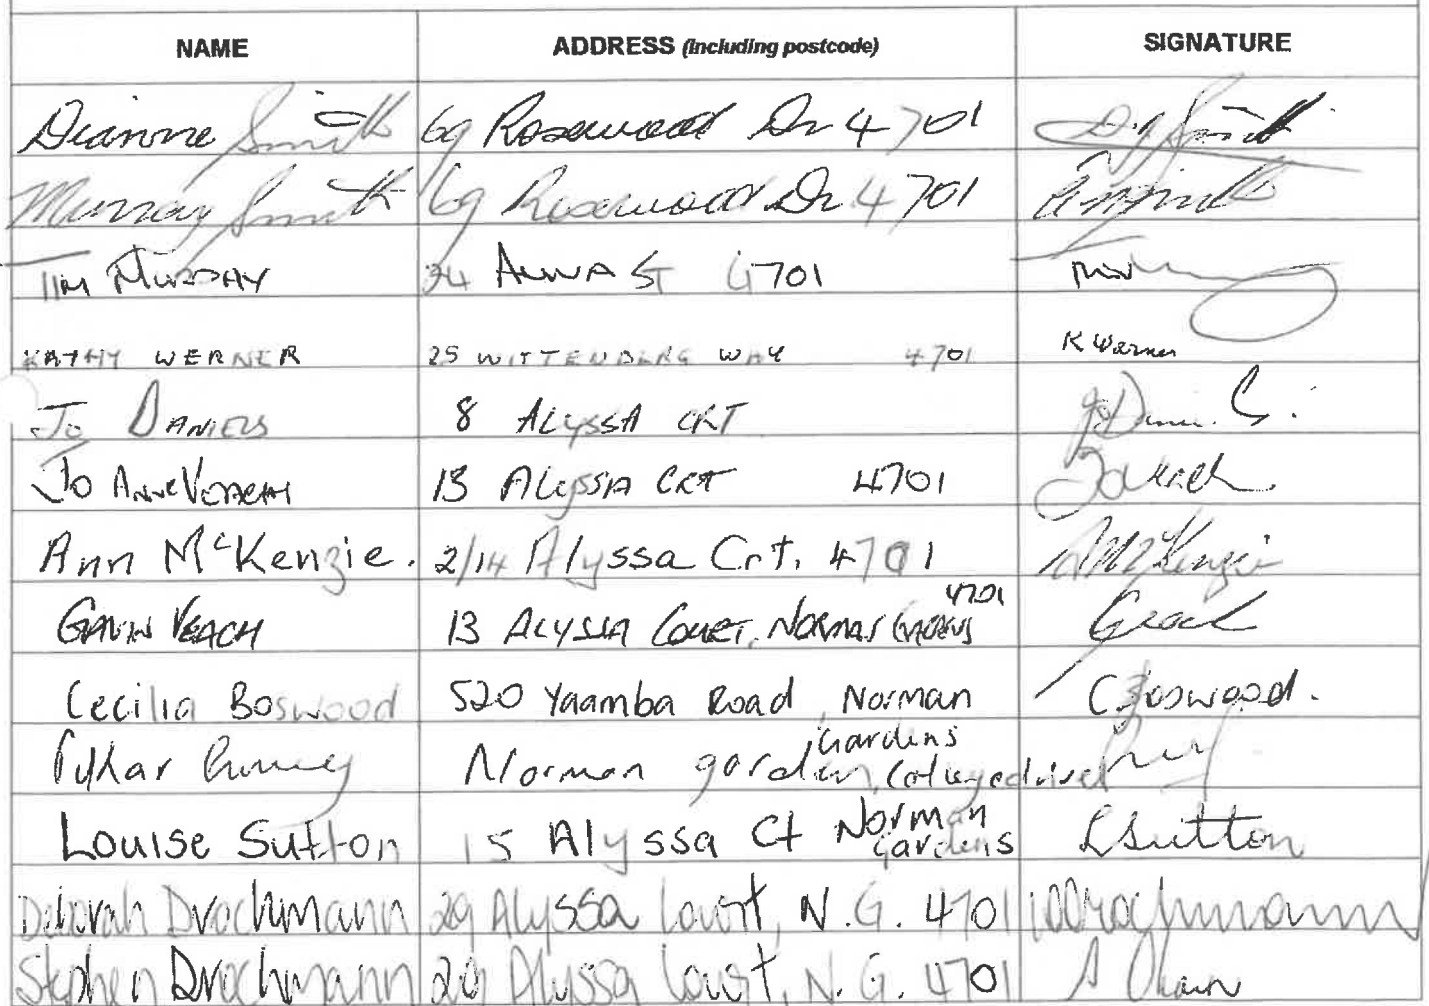 NAME ADDRESS (including postcode) SIGNATURE
Dianne Smith 69 Rosewood Dr 4701 D Smith
Murray Smith 69 Rosewood Dr 4701
TIM MURPHY 34 ANNA ST 4701
KATHY WERNER 25 WITTENBERG WAY 4701 K Werner
Jo DANIELS 8 ALYSSA CRT
JO ANNE VEACH 13 ALYSSA CRT 4701
Ann McKenzie. 2/14 Alyssa Crt. 4701 A McKenzie
GAVIN VEACH 13 ALYSSA COURT, NORMAN GARDENS 4701
Cecilia Boswood 520 Yaamba Road, Norman Gardens C Boswood.
Norman garden,
Louise Sutton 15 Alyssa Ct Norman Gardens L Sutton
Deborah Drochmann 29 Alyssa Court, N.G. 4701 Drochmann
Stephen Drochmann 29 Alyssa Court, N.G. 4701